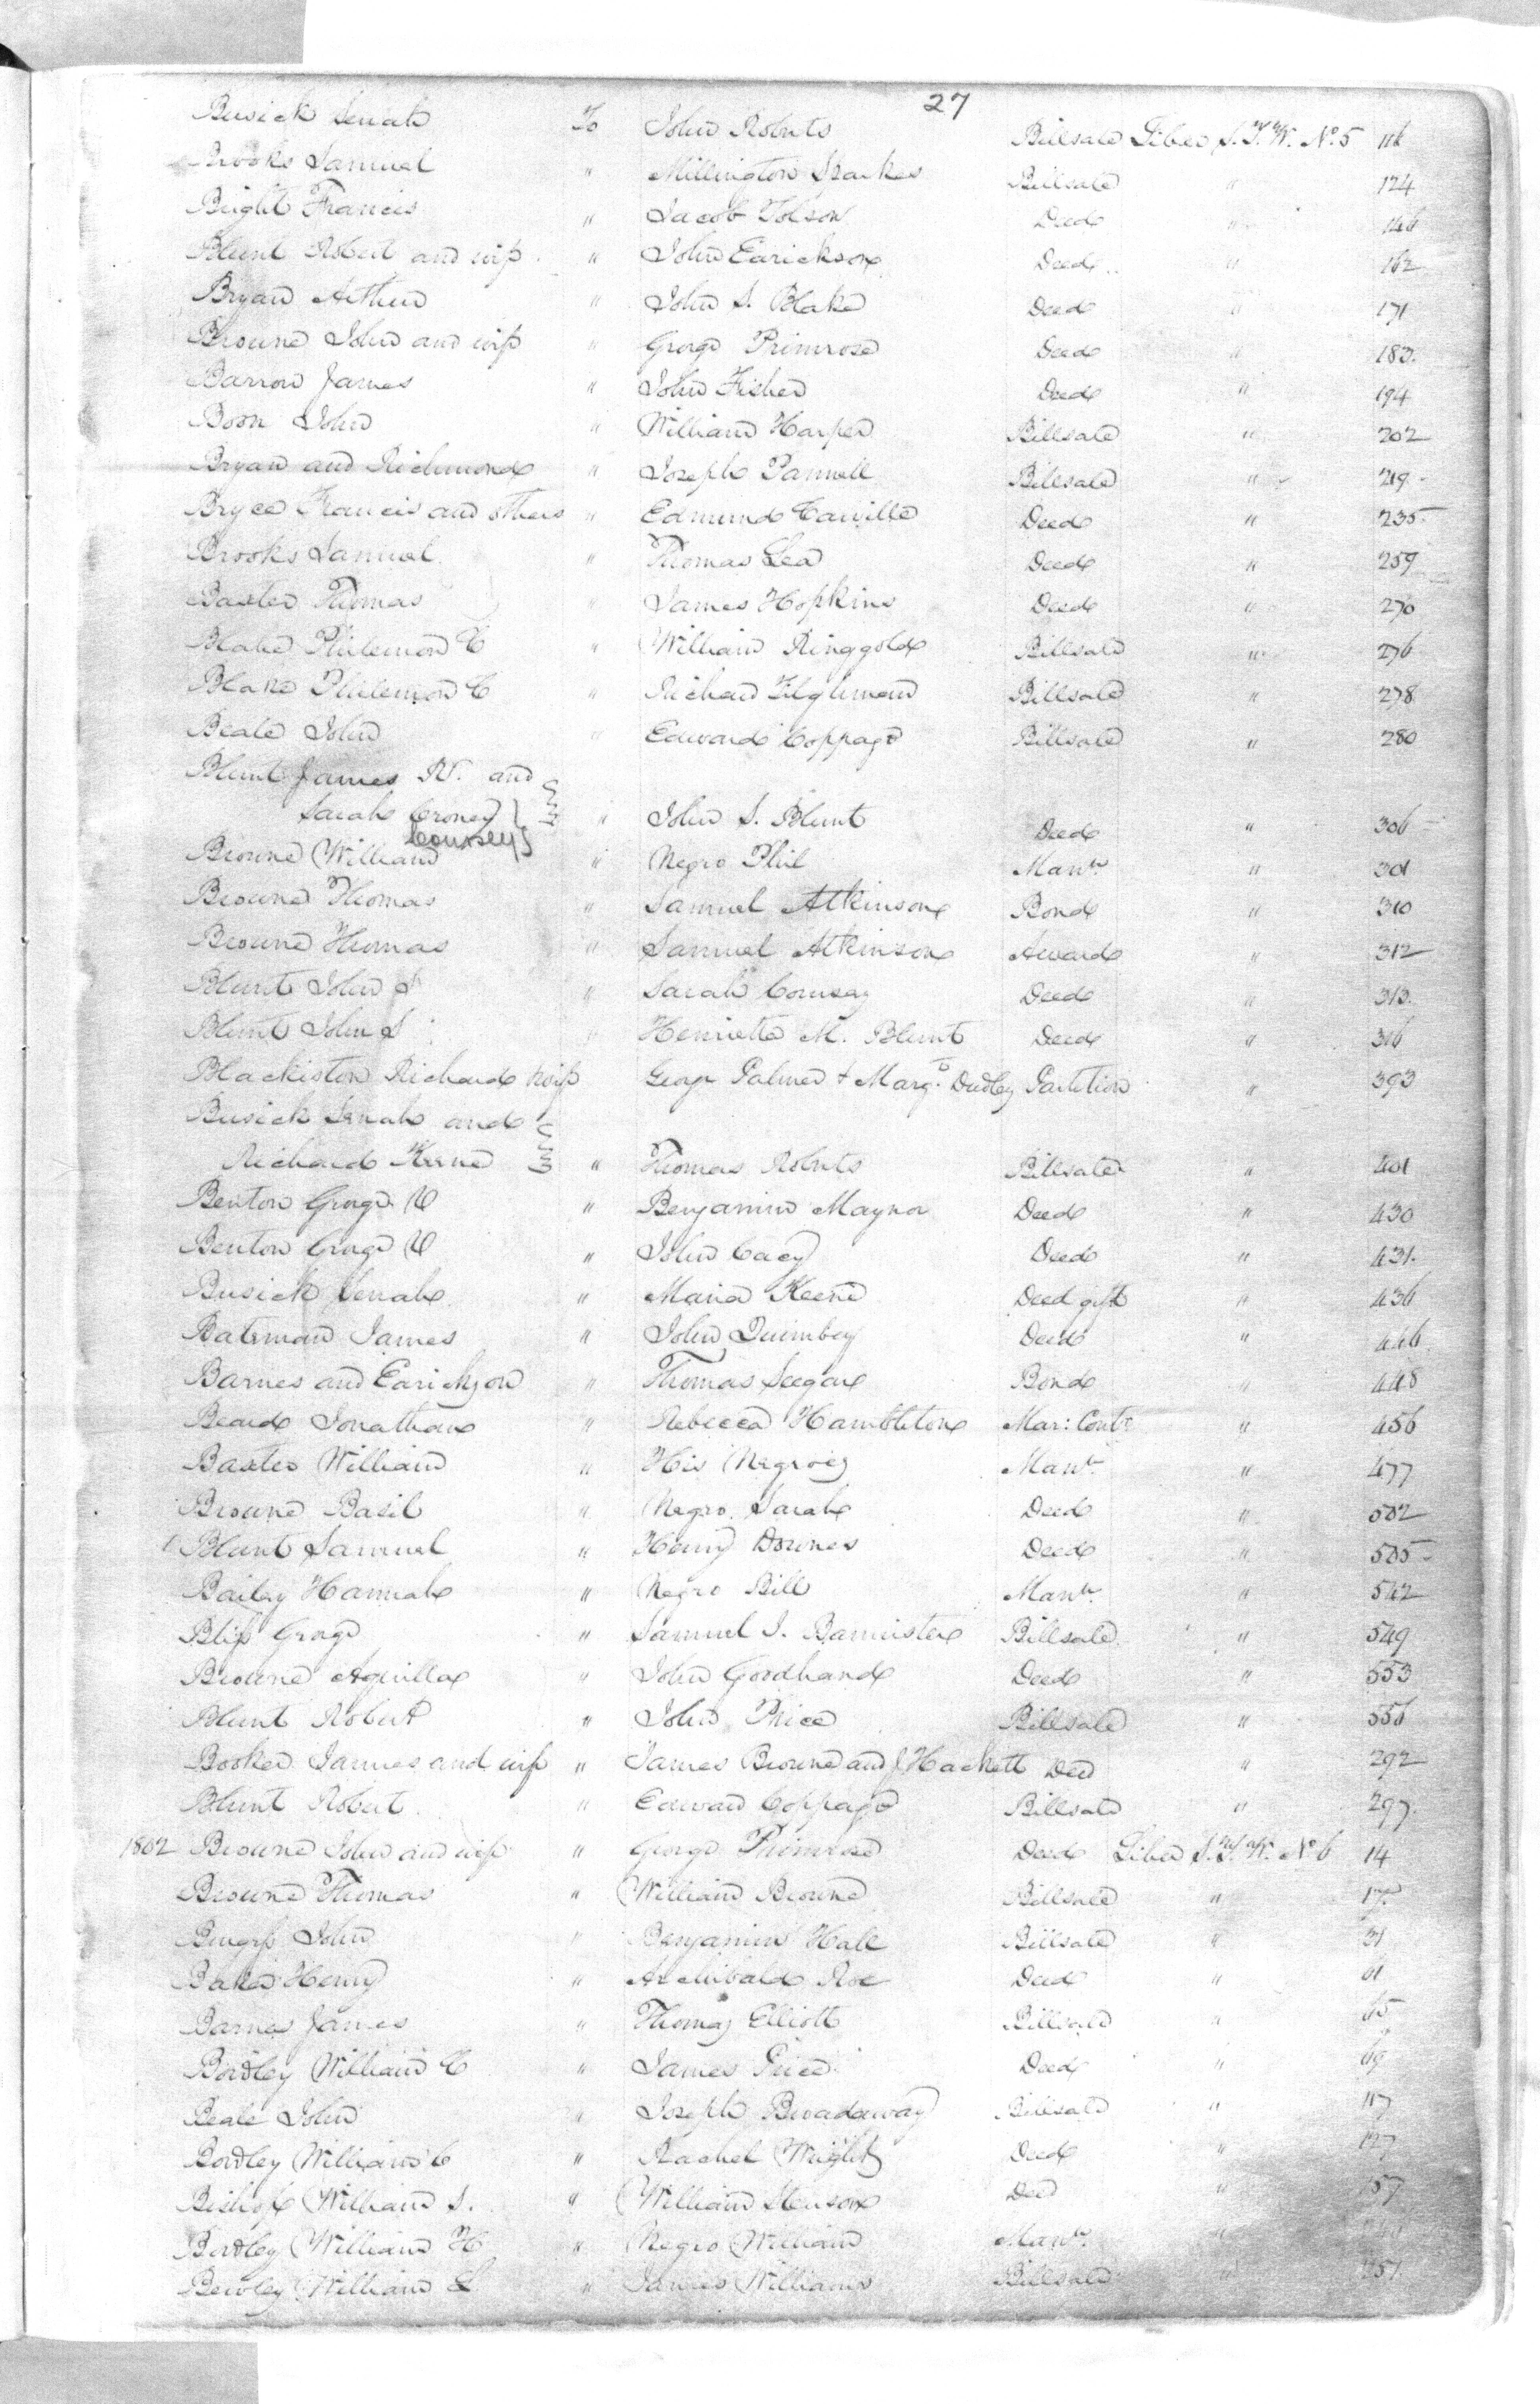 27
Busick Senah To John Roberts Billsale Liber S.T.W. No. 5 116
Brooks Samuel " Millington Sparkes Billsale " 124
Bright Francis " Jacob Tolson Deed " 146
Blunt Robert and wife " John Earickson Deed " 162
Bryan Arthur " John S. Blake Deed " 171
Browne John and wife " George Primrose Deed " 183.
Barrow James " John Fisher Deed " 194
Boon John " William Harper Billsale " 202
Bryan and Richmond " Joseph Pannell Billsale " 219
Bryce Francis and others " Edmund Carville Deed " 235
Brooks Samuel " Thomas Lea Deed " 259
Baxter Thomas " James Hopkins Deed " 270
Blake Philemon C " William Ringgold Billsale " 276
Blake Philemon C " Richard Tilghman Billsale " 278
Beale John " Edward Coppage Billsale " 280
Blunt James R. and
Sarah Croney " John S. Blunt Deed " 306
Coursey
Browne William " Negro Phil Mann. " 301
Browne Thomas " Samuel Atkinson Bond " 310
Browne Thomas " Samuel Atkinson Award " 312
Blunt John S " Sarah Coursey Deed " 313.
Blunt John S " Henrietta M. Blunt Deed " 316
Blackiston Richard & wife George Palmer & Margt. Dudley Partition " 393
Busick Senah and
Richard Keene " Thomas Roberts Billsale " 401
Benton George V " Benjamin Maynor Deed " 430
Benton George V " John Cacy Deed " 431.
Busick Senah " Maria Keene Deed gift " 436
Bateman James " John Quimbey Deed " 446
Barnes and Earickson " Thomas Seegar Bond " 448
Beard Jonathan " Rebecca Hambleton Mar: Contr " 456
Baxter William " His Negroes Manr. " 477
Browne Basil " Negro Sarah Deed " 502
Blunt Samuel " Henry Downes Deed " 505
Bailey Hannah " Negro Bill Manr. " 542
Bliss George " Samuel S. Bannister Billsale " 549
Browne Aquilla " John Goodhand Deed " 553
Blunt Robert " John Price Billsale " 556
Booker James and wife " James Browne and J Hackett Deed " 292
Blunt Robert " Edward Coppage Billsale " 297.
1802 Browne John and wife " George Primrose Deed Liber S.T.W. No. 6 14
Browne Thomas " William Browne Billsale " 17.
Burgess John " Benjamin Hall Billsale " 31
Baker Henry " Archibald Roe Deed " 61
Barnes James " Thomas Elliott Billsale " 65
Bordley William C " James Price Deed "
Beale John " Joseph Broadaway Billsale " 117
Bordley William C " Rachel Wright Deed " 127
Bishop William S. " William Stenson Deed " 157
Bordley William H " Negro William Manr. "
Bewley William L " James Williams Billsale " 251.